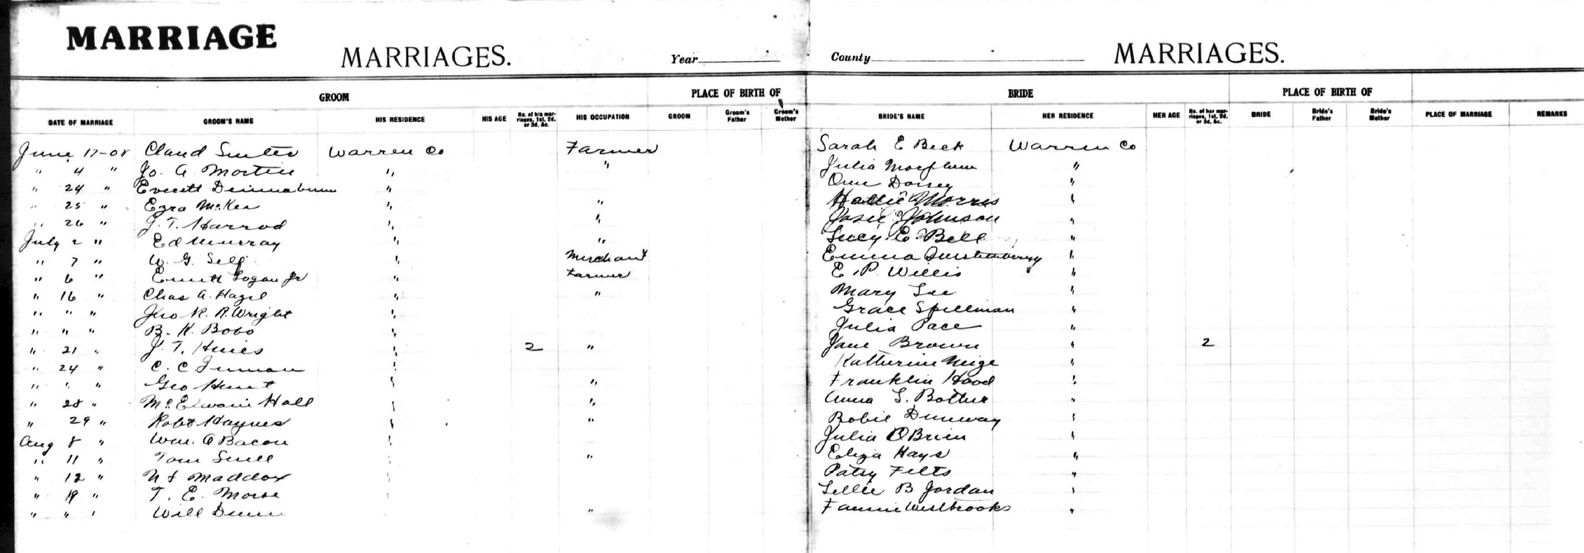 MARRIAGE
MARRIAGES. Year County MARRIAGES.
GROOM PLACE OF BIRTH OF BRIDE PLACE OF BIRTH OF
DATE OF MARRIAGE GROOM'S NAME HIS RESIDENCE HIS AGE No. of his marriages, 1st, 2d, or 3d, &c. HIS OCCUPATION GROOM Groom's Father Groom's Mother BRIDE'S NAME HER RESIDENCE HER AGE No. of her marriages, 1st, 2d, or 3d, &c. BRIDE Bride's Father Bride's Mother PLACE OF MARRIAGE REMARKS
June 17-08 Claud Warren Co Farmer Sarah E Beck Warren Co
" 4 " Jo. A " " Julia "
" 24 " Everett " Dorsey "
" 25 " Ezra McKee " Hallie Morris "
" 26 " J. T. Harrod " " Josie Johnson "
July 2 " Ed Murray " " Lucy E. Bell "
" 7 " W. G. Self " Merchant Emma "
" 6 " Emmett Logan Jr " Farmer E. P. Willis "
" 16 " Chas A. Hazel " " Mary Lee "
" " " Jno R. Wright " Grace Spillman "
" " " B. K. Bobo " Julia Pace "
" 21 " J. T. Hines " 2 " Jane Brown " 2
" 24 " C. C. " Katherine "
" " " Geo Hunt " " Franklin Hood "
" 28 " McElwain Hall " " Anna L. "
" 29 " Robt Haynes " " Bobie Dunway "
Aug 8 " Wm. A Bacon " Julia O'Brien "
" 11 " Tom " " Eliza Hays "
" 12 " Maddox " Patsy Felts "
" 19 " T. E. Morse " Lellie B Jordan "
" " " Will Dunn " Fannie Westbrooks "